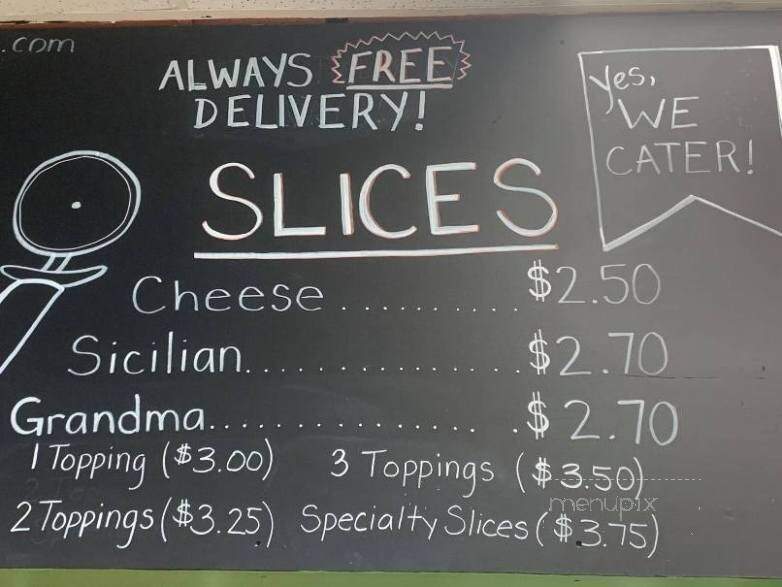 .com
ALWAYS FREE
DELIVERY!
Yes,
WE
CATER!
SLICES
Cheese .......... $2.50
Sicilian................ $2.70
Grandma................ .$2.70
1 Topping ($3.00) 3 Toppings ($3.50)
2 Toppings ($3.25) Specialty Slices ($3.75)
menupix